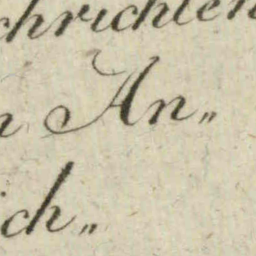 chrichten
n An„
ich„